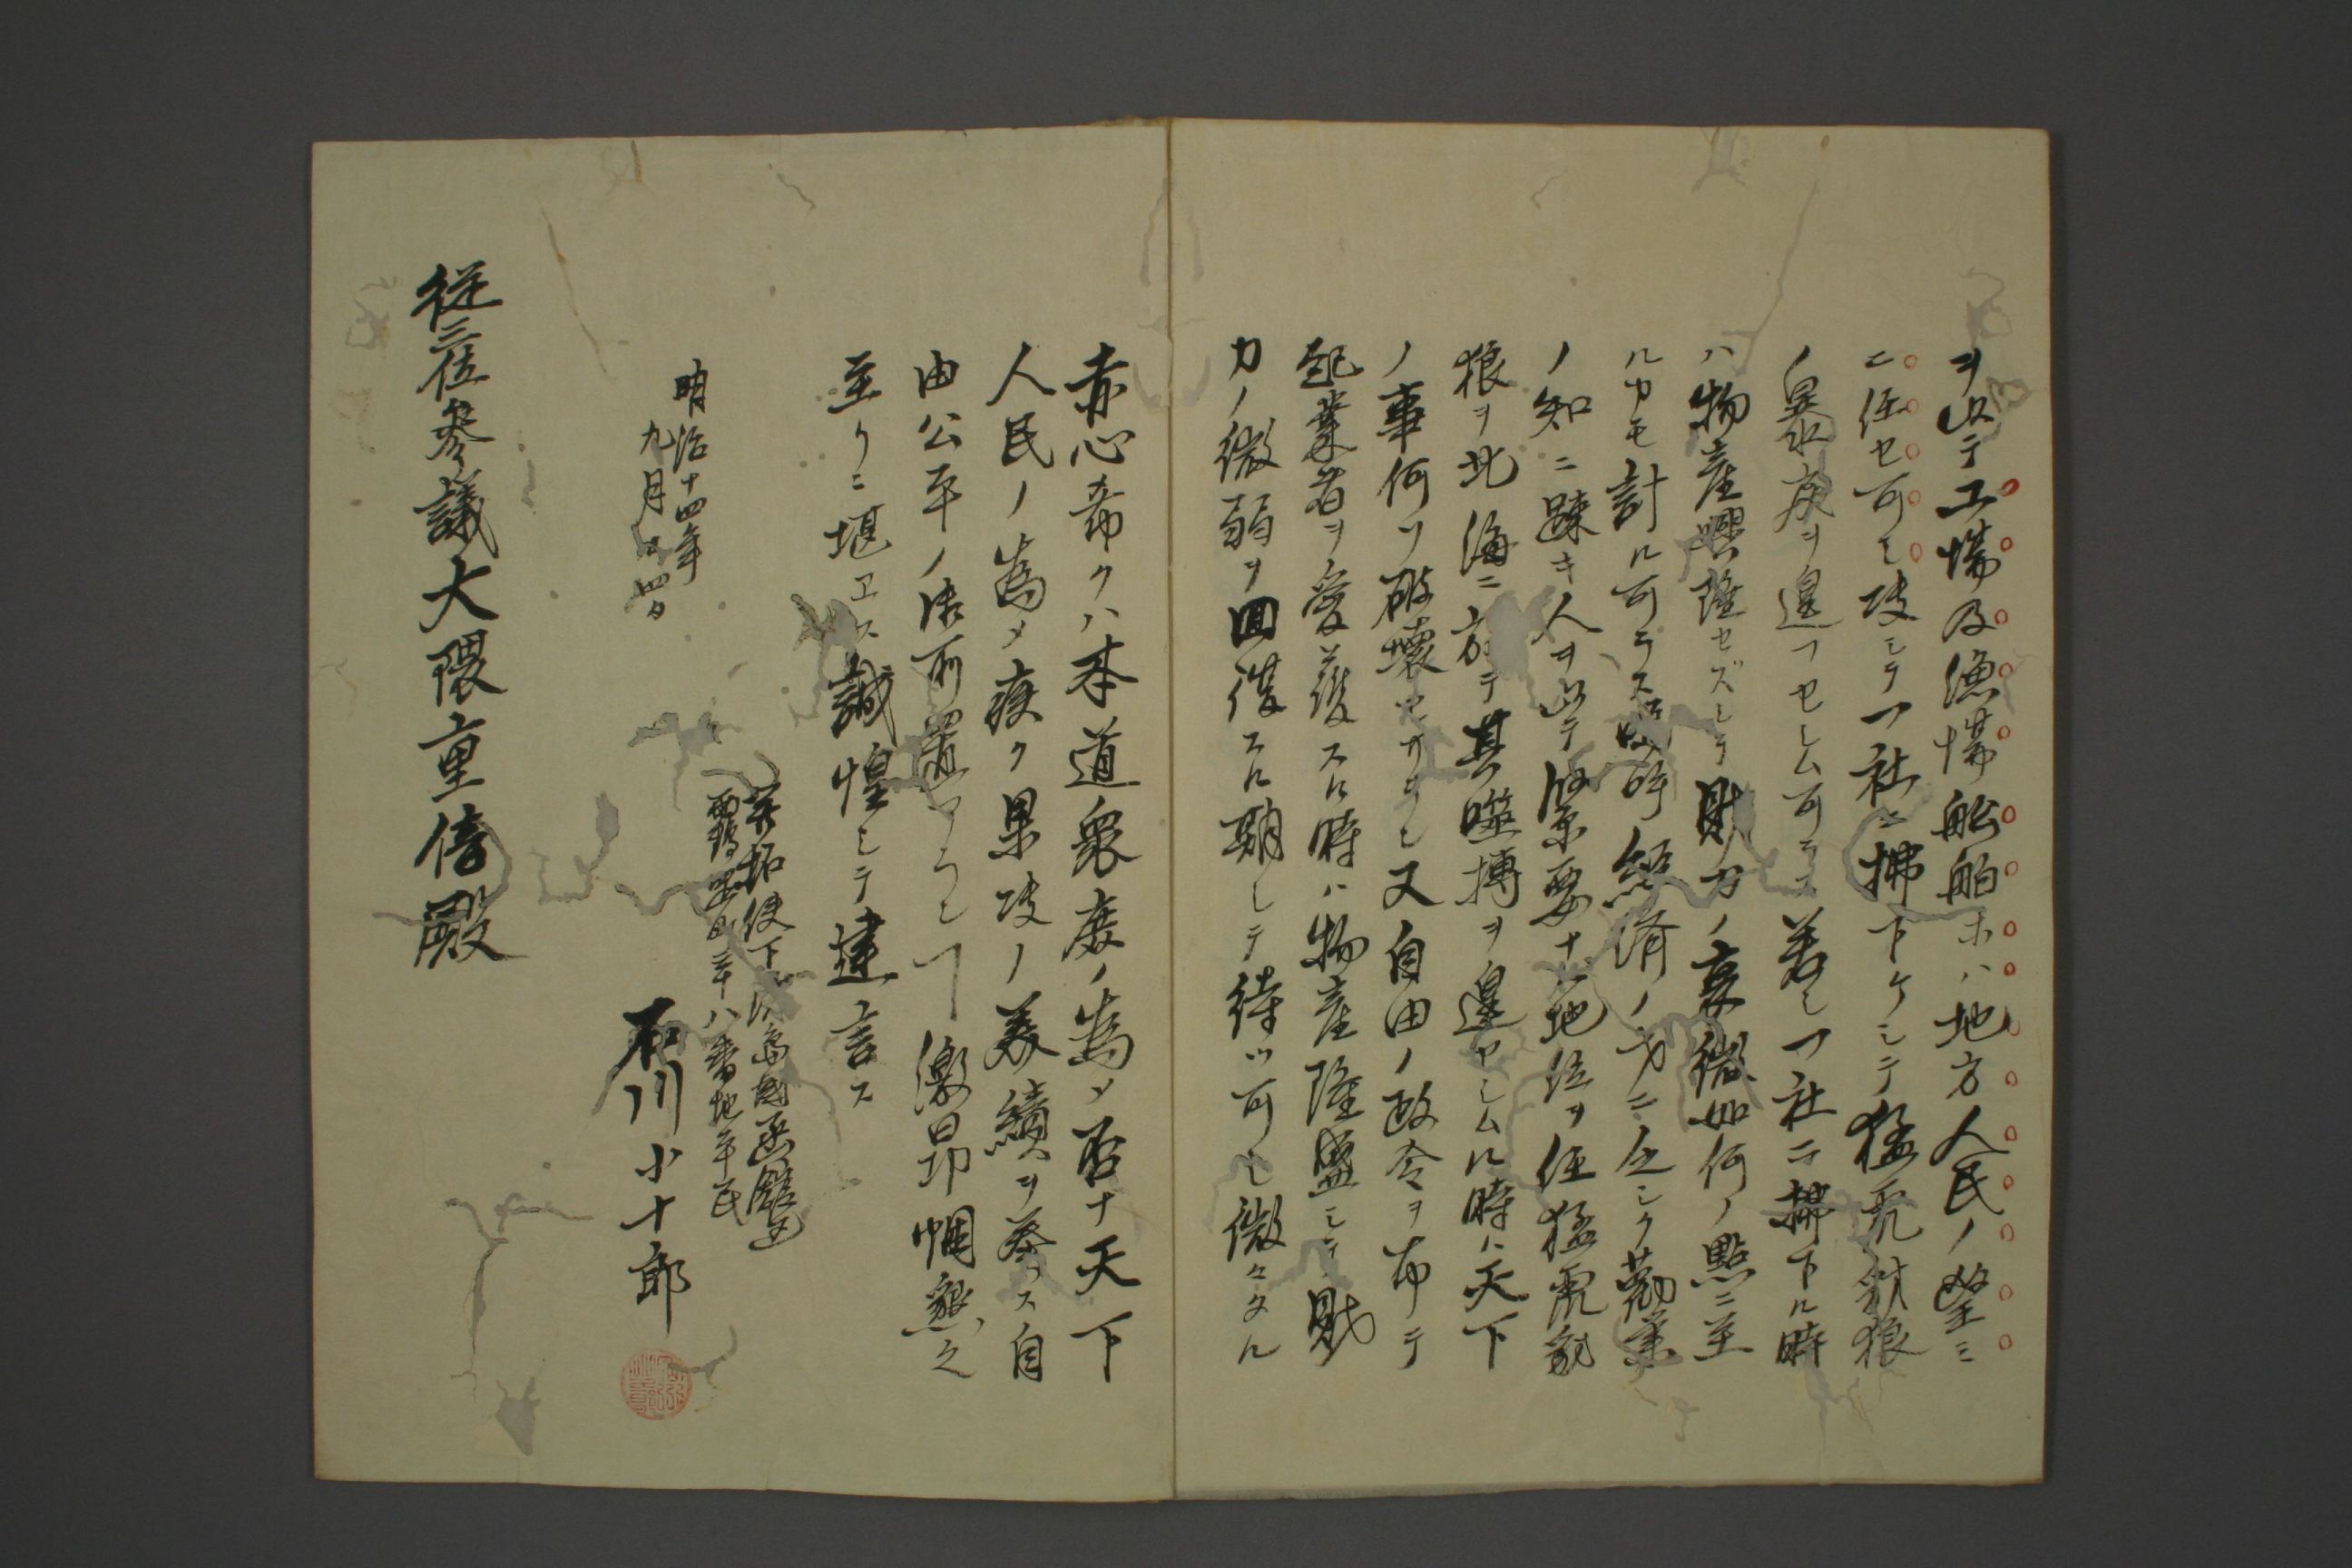 ヲ以テ工場及漁場船舶ホハ地方人民ノ望ミ
ニ任セ可シ決シテ一社ニ拂下ケシテ猛虎豺狼
ノ暴戻ヲ逞フセシム可ラス若シ一社ニ拂下ル時
ハ物産興隆セズシテ財力ノ衰微如何ノ點ニ至
ルカモ計ル可ラス嗚呼經済ノ才ニ乏シク勸業
ノ知ニ踈キ人ヲ以テ緊要ナル地位ヲ任猛虎豺
狼ヲ北海ニ放テ其噬搏ヲ逞セシムル時ハ天下
ノ事何ソ破壊セサラン又自由ノ政令ヲ布テ
起業者ヲ愛護スル時ハ物産隆盛シテ財
力ノ微弱ヲ回復スル期シテ待ツ可シ微々タル
赤心希クハ本道衆庶ノ為メ否ナ天下
人民ノ為メ疾ク果決ノ美績ヲ奏ス自
由公平ノ御所置アランヿ激昂悃懇之
至リニ堪ヱス誠惶シテ建言ス
明治十四年
九月四日
開拓使下渡島國函館區
西鶴岡町三十八番地平民
石川小十郎
従三位參議大隈重信殿